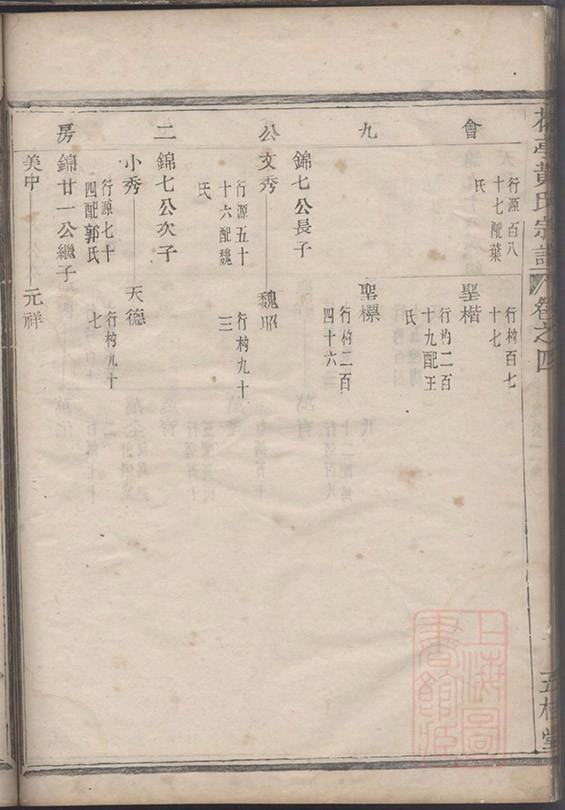 黃氏宗譜 卷之四
會九公二房
行源百八
十七配葉
氏
行杓百七
十七
聖楷
行杓二百
十九配王
氏
聖標
行杓二百
四十六
錦七公長子
文秀
行源五十
十六配魏
氏
魏昭
行杓九十
三
錦七公次子
小秀
行源七十
四配郭氏
天德
行杓九十
七
錦廿一公繼子
美中
元祥
上海圖
書館藏